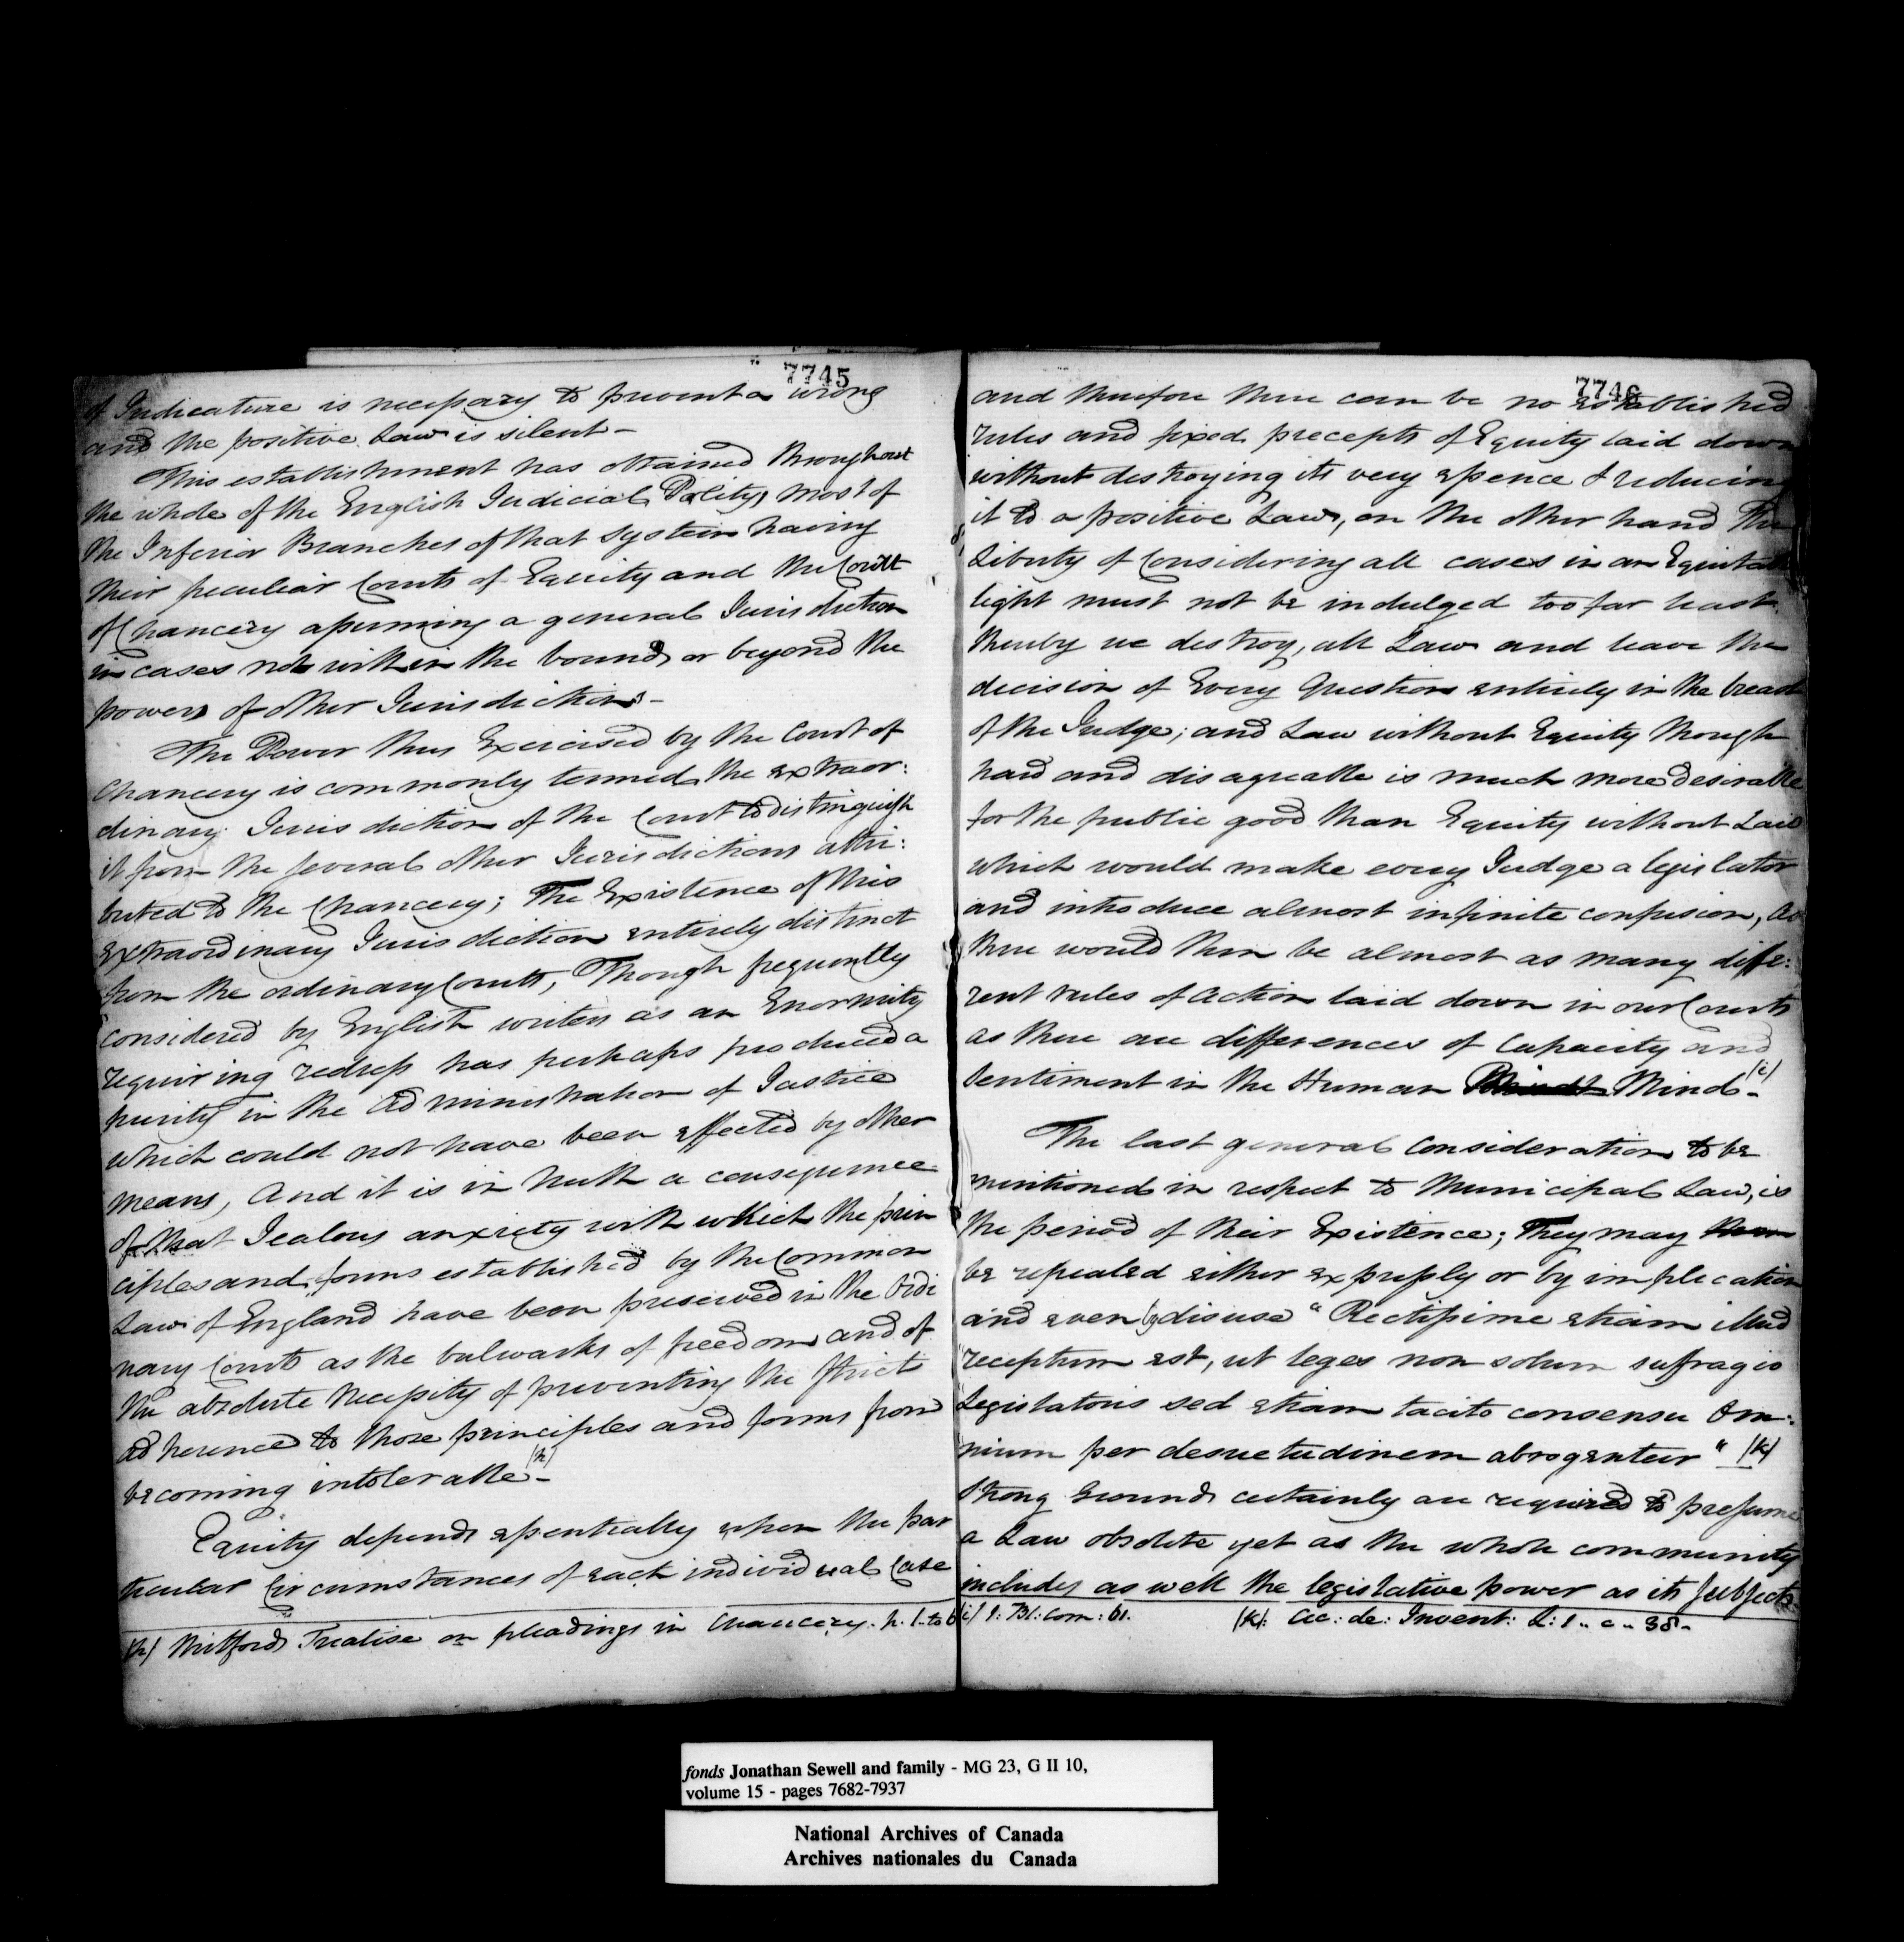 7745
of Judicature is necessary to prevent a wrong
and the positive Law is silent –
This establishment has obtained throughout
the whole of the English Judicial Polity, most of
the Inferior Branches of that System having
their peculiar Courts of Equity and the Court
of Chancery assuming a general Jurisdiction
in cases not within the bounds or beyond the
powers of other Jurisdictions –
The Power thus Exercised by the Court of
Chancery is commonly termed the extraor:
dinary Jurisdiction of the Court to distinguish
it from the several other Jurisdictions attri:
buted to the Chancery; The Existence of this
extraordinary Jurisdiction entirely distinct
from the ordinary Courts, Though frequently
considered by English writers as an Enormity
requiring redress has perhaps produced a
purity in the Administration of Justice
which could not have been effected by other
means, And it is in truth a consequence
of that Jealous anxiety with which the prin
ciples and forms established by the Common
Law of England have been preserved in the Ordi
nary Courts as the bulwarks of freedom and of
the absolute Necessity of preventing the strict
adherence to those principles and forms from
becoming intolerable (h) –
Equity depends essentially upon the par
ticular Circumstances of each individual Case
(h) Mitfords Treatise on pleadings in Chancery. p. 1. to 6
7746
and therefore there can be no established
rules and fixed precepts of Equity laid down
without destroying its very essence & reducing
it to a positive Law, on the other hand The
Liberty of Considering all cases in an Equitable
light must not be indulged too far least
thereby we destroy, all Law and leave the
decision of Every Question entirely in the breast
of the Judge; and Law without Equity though
hard and disagreable is much more desirable
for the public good than Equity without Law
which would make every Judge a legislator
and introduce almost infinite confusion, as
there would then be almost as many diffe:
rent rules of action laid down in our Courts
as there are differences of Capacity and
Sentiment in the Human Mind (i) –
The last general Consideration to be
mentioned in respect to Municipal Law, is
the period of their Existence; They may
be repealed either expressly or by implication
and even by disuse "Rectissime etiam illud
receptum est, ut leges non solum sufragio
Legislatoris sed etiam tacito consensu Om:
nium per desuetudinem abrogentur" (k)
Strong Grounds certainly are required to presume
a Law obsolete yet as the whole community
includes as well the legislative power as its subjects
(i) 1: Bl: Com: 61. (k): Cic: de: Invent: L: 1 .. c .. 38 –
fonds Jonathan Sewell and family - MG 23, G II 10,
volume 15 - pages 7682-7937
National Archives of Canada
Archives nationales du Canada